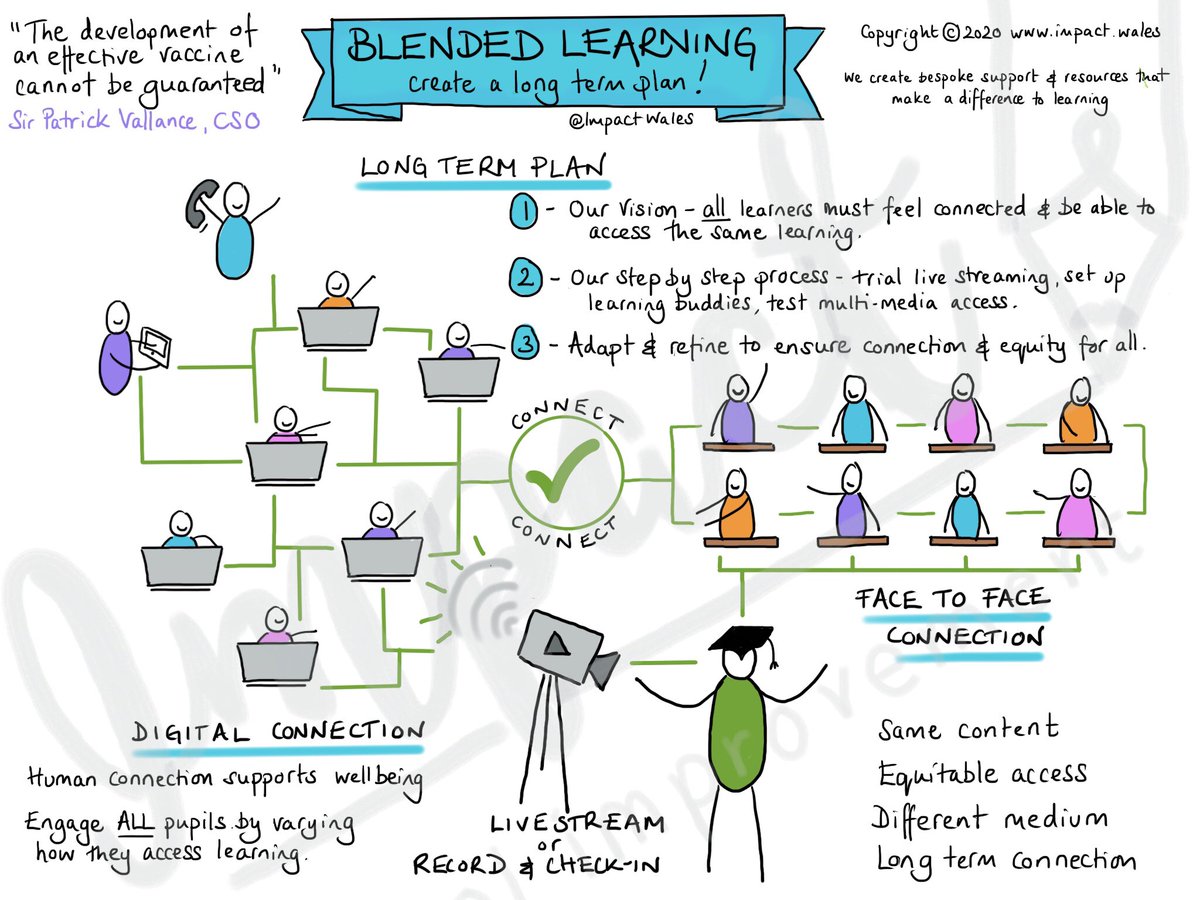 "The development of
an effective vaccine
cannot be guaranteed"
Sir Patrick Vallance, CSO
BLENDED LEARNING
create a long term plan!
@ImpactWales
Copyright © 2020 www.impact.wales
We create bespoke support & resources that
make a difference to learning
LONG TERM PLAN
1 - Our Vision - all learners must feel connected & be able to
access the same learning.
2 - Our step by step process - trial live streaming, set up
learning buddies, test multi-media access.
3 - Adapt & refine to ensure connection & equity for all.
CONNECT
CONNECT
FACE TO FACE
CONNECTION
DIGITAL CONNECTION
Human connection supports wellbeing
Engage ALL pupils by varying
how they access learning.
LIVESTREAM
or
RECORD & CHECK-IN
Same content
Equitable access
Different medium
Long term connection
Impact
improvement